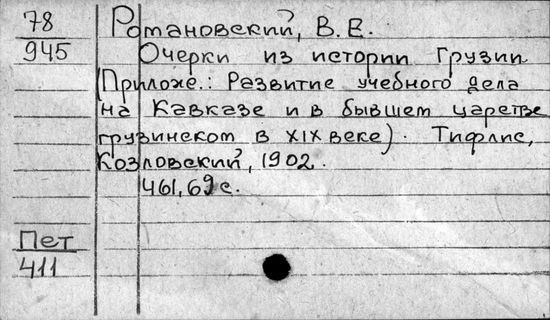 78
945
Романовский, В. Е.
Очерки из истории Грузии
(Приложе.: Развитие учебного дела
на Кавказе и в бывшем царстве
грузинском в XIX веке). Тифлис,
Козловский, 1902.
461, 69 с.
Пет
411